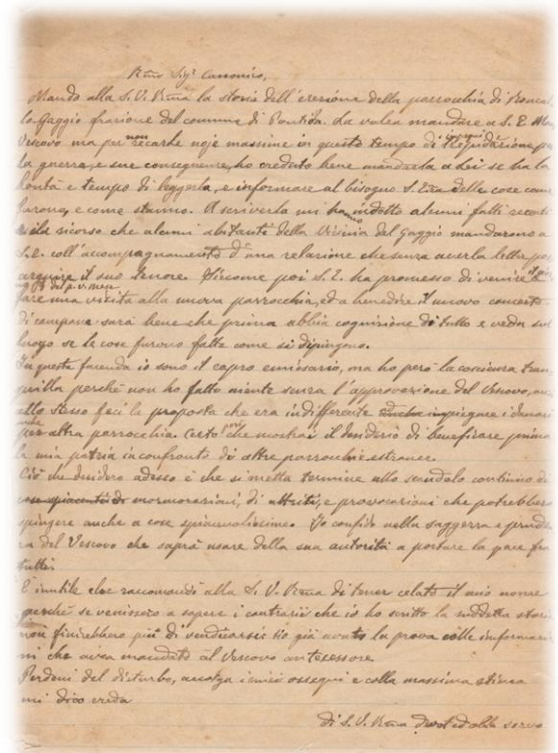 Rmo Sigr Canonico,
Mando alla S. V. Rma la storia dell'erezione della parrocchia di Ronca
lo Gaggio frazione del comune di Pontida. La volea mandare a S. E. Mons
Vescovo ma per non recarle noje massime in questo tempo di trepidazione per
la guerra, e sue conseguenze, ho creduto bene mandarla a Lei se ha la
bontà e tempo di leggerla, e informare al bisogno S. Ecza delle cose come
furono, e come stanno. A scriverla mi hanno indotto alcuni fatti recenti
e il ricorso che alcuni abitanti della Vicinia del Gaggio mandarono a
S. E. coll'accompagnamento d'una relazione che senza averla letta posso
arguire il suo tenore. Siccome poi S. E. ha promesso di venire
fare una visita alla nuova parrocchia, ed a benedire il nuovo concerto
di campane sarà bene che prima abbia cognizione di tutto e veda sul
luogo se le cose furono fatte come si dipingono.
In questa facenda io sono il capro emissario, ma ho però la coscienza tran
quilla perchè non ho fatto niente senza l'approvazione del Vescovo, an
allo stesso feci le proposta che era indifferente impiegare i denari
per altra parrocchia. Certo che mostrai il desiderio di beneficare prima
la mia patria in confronto di altre parrocchie estranee.
Ciò che desidero adesso è che si metta termine allo scandalo continuo di
mormorazioni, di attriti, e provocazioni che potrebbero
spingere anche a cose spiacevolissime. Io confido nella saggezza e pruden
za del Vescovo che saprà usare della sua autorità a portare la pace fra
tutti.
È inutile che raccomandi alla S. V. Rma di tener celato il mio nome
perchè se venissero a sapere i contrarii che io ho scritto la suddetta storia
non finirebbero più di vendicarsi: io già avuto la prova colle informazio
ni che avea mandato al Vescovo antecessore.
Perdoni del disturbo, accolga i miei ossequi e colla massima stima
mi dico creda
di S. V. Rma devot ed obbl servo